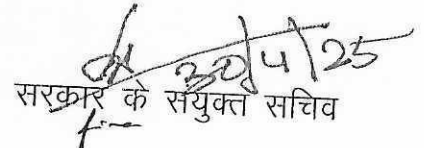 30/4/25
सरकार के संयुक्त सचिव